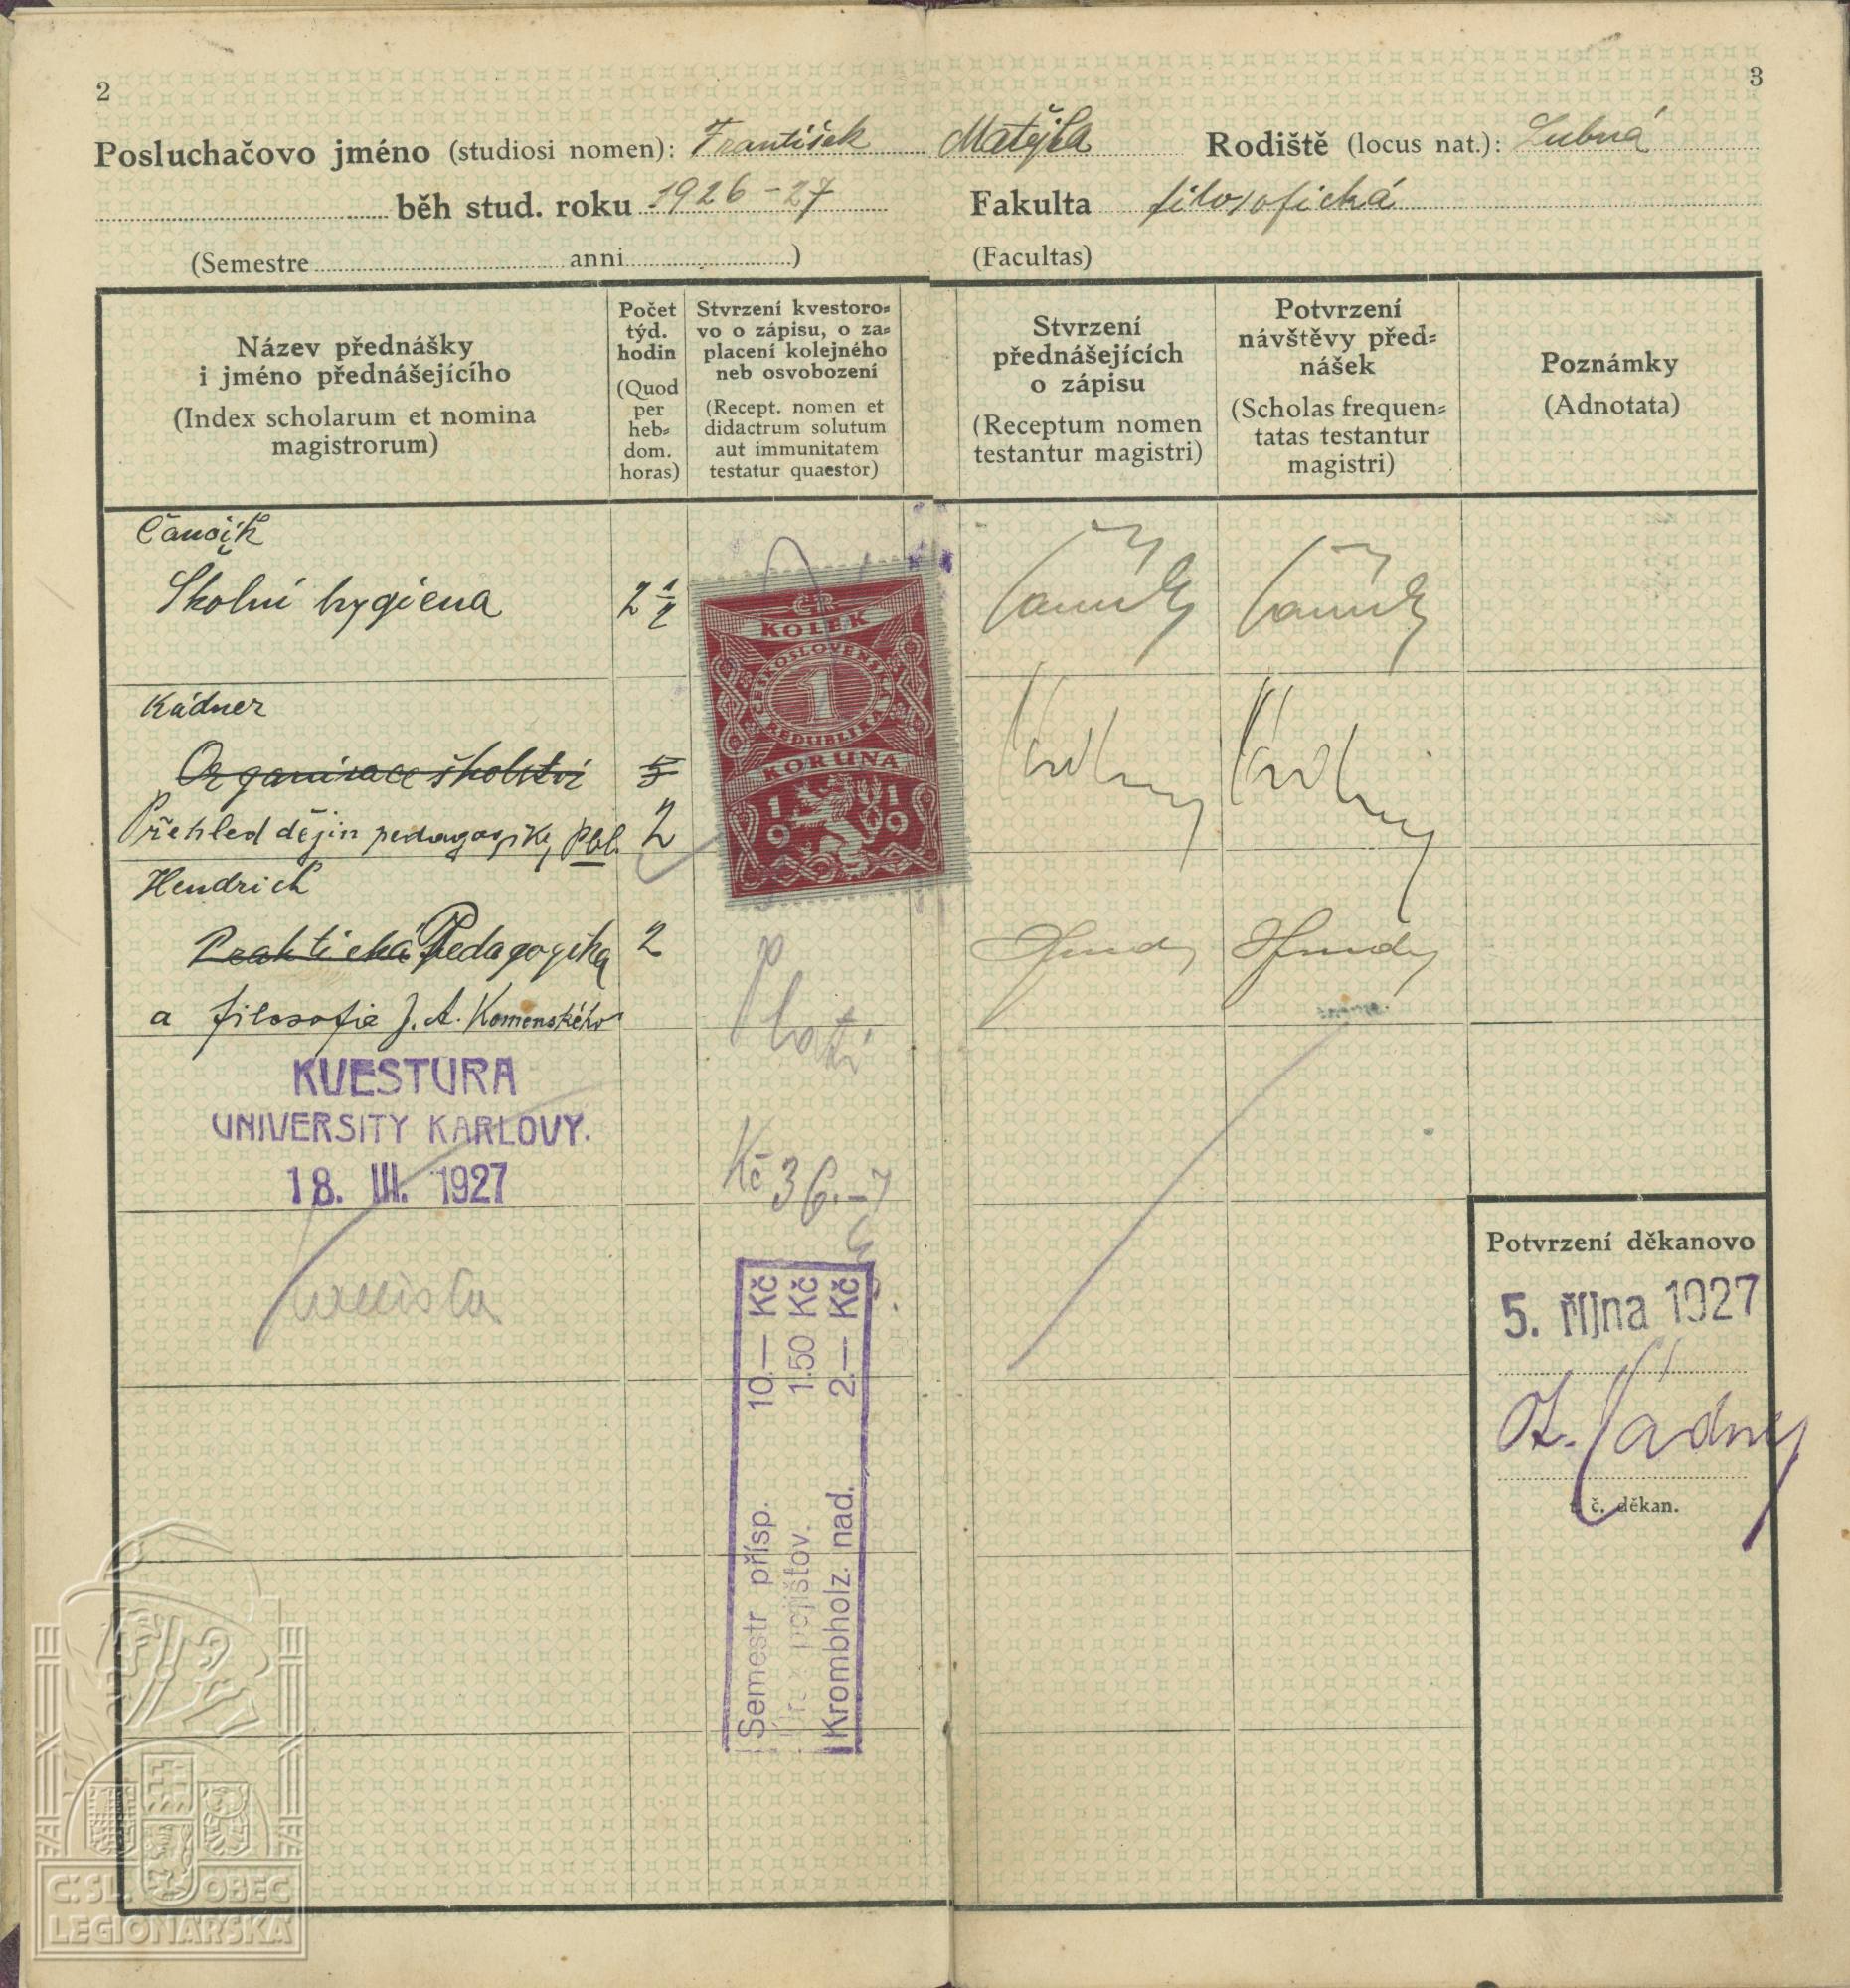 2
3
Posluchačovo jméno (studiosi nomen): František Matějka Rodiště (locus nat.): Lubná
běh stud. roku 1926-27 Fakulta filosofická
(Semestre anni ) (Facultas)
Název přednášky
i jméno přednášejícího
(Index scholarum et nomina
magistrorum)
Počet
týd.
hodin
(Quod
per
heb=
dom.
horas)
Stvrzení kvestoro=
vo o zápisu, o za=
placení kolejného
neb osvobození
(Recept. nomen et
didactrum solutum
aut immunitatem
testatur quaestor)
Stvrzení
přednášejících
o zápisu
(Receptum nomen
testantur magistri)
Potvrzení
návštěvy před=
nášek
(Scholas frequen=
tatas testantur
magistri)
Poznámky
(Adnotata)
Čančík
Školní hygiena 2 1/2
ČR
KOLEK
ČESKOSLOVENSKÁ
REPUBLIKA
1
KORUNA
19 19
Kádner
Organisace školství 5
Přehled dějin pedagogiky, pbl. 2
Hendrich
Praktická Pedagogika 2
a filosofie J. A. Komenského
Platí
KVESTURA
UNIVERSITY KARLOVY.
18. III. 1927
Kč 36.-
Semestr přísp. 10.— Kč
Úraz. pojišťov. 1.50 Kč
Krombholz. nad. 2.— Kč
Potvrzení děkanovo
5. října 1927
O. Kádner
t. č. děkan.
Č: SL. OBEC
LEGIONÁŘSKÁ